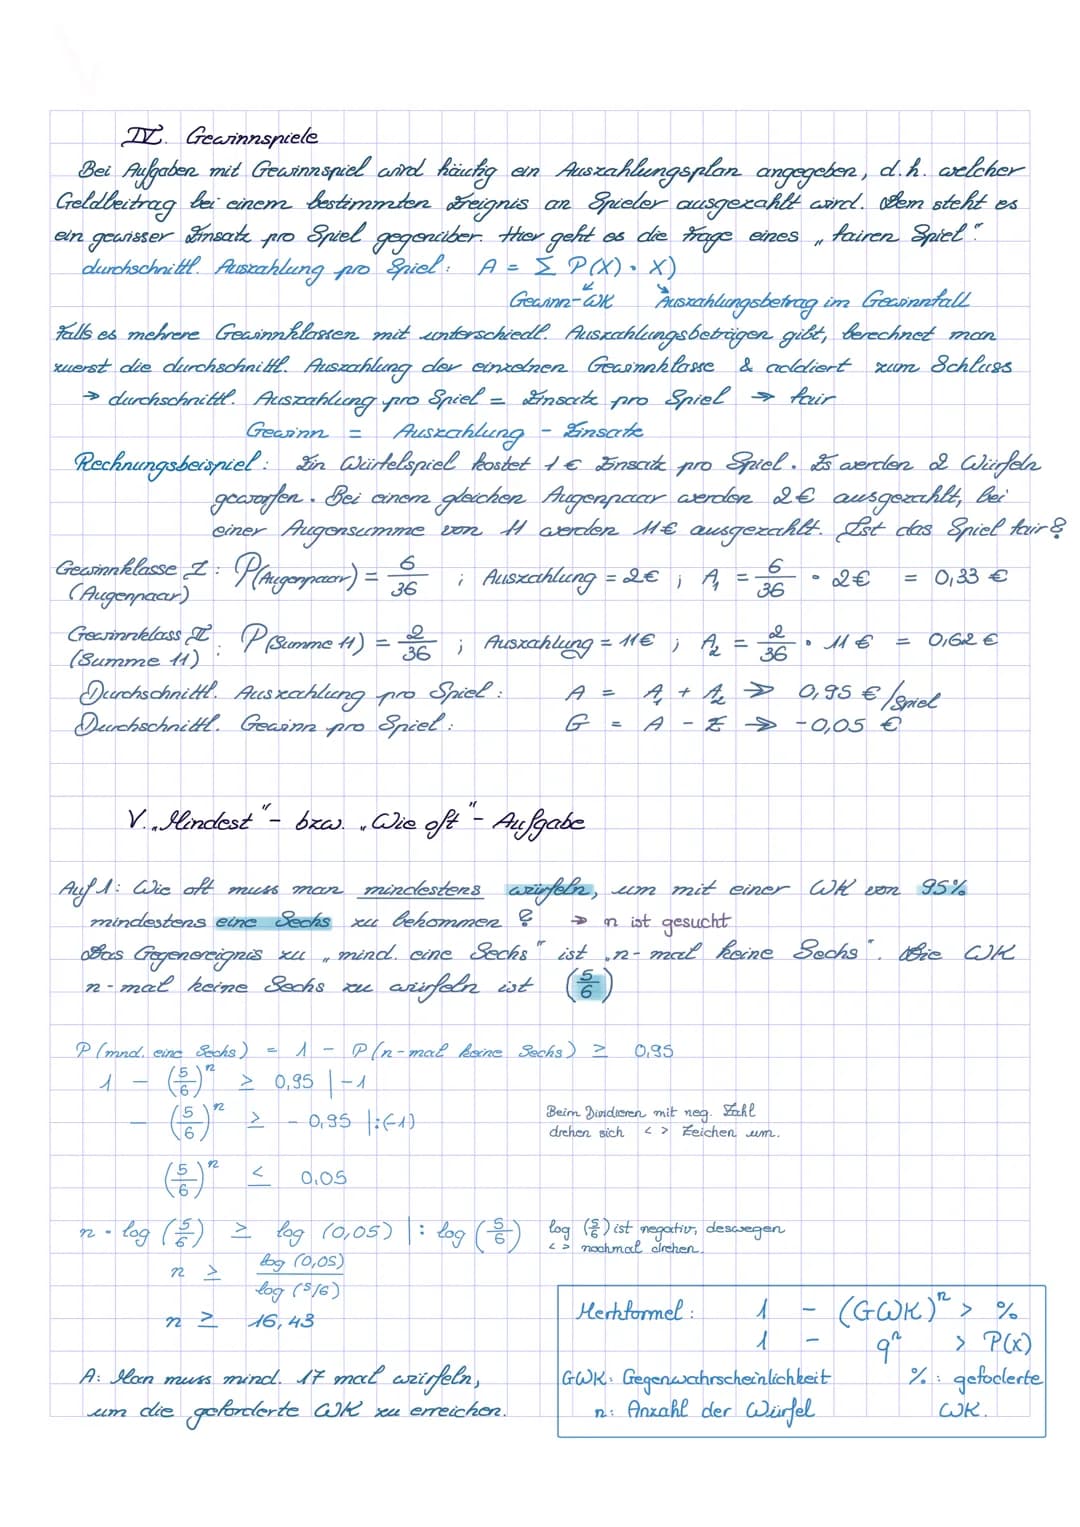 IV. Gewinnspiele
Bei Aufgaben mit Gewinnspiel wird häufig ein Auszahlungsplan angegeben, d.h. welcher
Geldbeitrag bei einem bestimmten Ereignis an Spieler ausgezahlt wird. Dem steht es
ein gewisser Einsatz pro Spiel gegenüber. Hier geht es die Frage eines „fairen Spiel“.
durchschnittl. Auszahlung pro Spiel: A = Σ P(X) · X)
Gewinn-WK Auszahlungsbetrag im Gewinnfall
Falls es mehrere Gewinnklassen mit unterschiedl. Auszahlungsbeträgen gibt, berechnet man
zuerst die durchschnittl. Auszahlung der einzelnen Gewinnklasse & addiert zum Schluss
→ durchschnittl. Auszahlung pro Spiel = Einsatz pro Spiel → fair
Gewinn = Auszahlung - Einsatz
Rechnungsbeispiel: Ein Würfelspiel kostet 1 € Einsatz pro Spiel. Es werden 2 Würfeln
geworfen. Bei einem gleichen Augenpaar werden 2€ ausgezahlt, bei
einer Augensumme von 11 werden 11€ ausgezahlt. Ist das Spiel fair?
Gewinnklasse I: P(Augenpaar) = 6/36 ; Auszahlung = 2€ ; A₁ = 6/36 · 2€ = 0,33 €
(Augenpaar)
Gewinnklass II: P(Summe 11) = 2/36 ; Auszahlung = 11€ ; A₂ = 2/36 · 11 € = 0,62 €
(Summe 11)
Durchschnittl. Auszahlung pro Spiel: A = A₁ + A₂ → 0,95 €/Spiel
Durchschnittl. Gewinn pro Spiel: G = A - E → -0,05 €
V. „Mindest“- bzw. „Wie oft“- Aufgabe
Auf 1: Wie oft muss man mindestens würfeln, um mit einer WK von 95%
mindestens eine Sechs zu bekommen? → n ist gesucht
Das Gegenereignis zu „mind. eine Sechs“ ist „n-mal keine Sechs“. Die WK
n-mal keine Sechs zu würfeln ist (5/6)
P (mnd. eine Sechs) = 1 - P (n-mal keine Sechs) ≥ 0,95
1 - (5/6)ⁿ ≥ 0,95 |-1
- (5/6)ⁿ ≥ - 0,95 |:(-1)
Beim Dividieren mit neg. Zahl
drehen sich < > Zeichen um.
(5/6)ⁿ ≤ 0,05
n · log (5/6) ≥ log (0,05) |: log (5/6)
log (5/6) ist negativ, deswegen
< > nochmal drehen.
n ≥ log (0,05) / log (5/6)
n ≥ 16,43
A: Man muss mind. 17 mal würfeln,
um die geforderte WK zu erreichen.
Merkformel: 1 - (GWK)ⁿ > %
1 - qⁿ > P(x)
GWK: Gegenwahrscheinlichkeit %: gefoderte
n: Anzahl der Würfel WK.